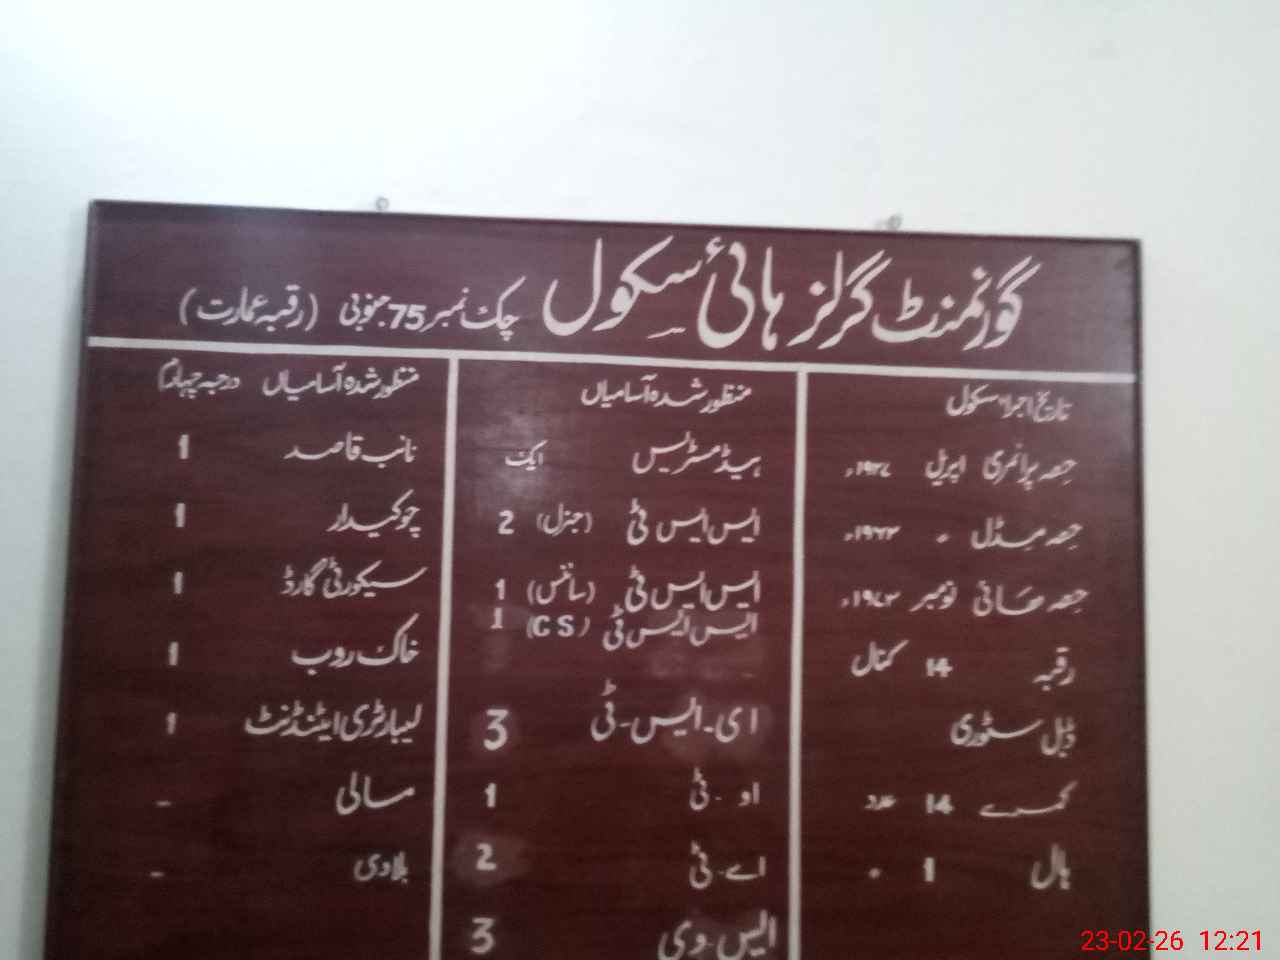 گورنمنٹ گرلز ہائی سکول چک نمبر 75 جنوبی (رقبہ عمارت)
تاریخ اجراء سکول
حصہ پرائمری اپریل ۱۹۲۷ء
حصہ مڈل ۱۹۶۳ء
حصہ ھائی نومبر ۱۹۸۳ء
رقبہ 14 کنال
ڈبل سٹوری
کمرے 14 عدد
ہال 1 〃
منظور شدہ آسامیاں
ہیڈ مسٹریس ایک
ایس ایس ٹی (جنرل) 2
ایس ایس ٹی (سائنس) 1
ایس ایس ٹی (CS) 1
ای۔ایس۔ٹی 3
او۔ٹی 1
اے۔ٹی 2
ایس۔وی 3
منظور شدہ آسامیاں درجہ چہارم
نائب قاصد 1
چوکیدار 1
سیکورٹی گارڈ 1
خاک روب 1
لیبارٹری اٹینڈنٹ 1
مالی -
بلاوی -
23-02-26 12:21